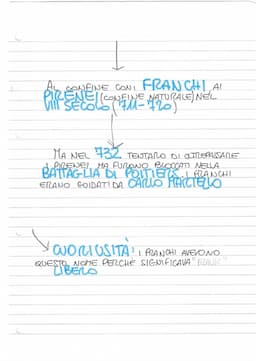 AL CONFINE CON I FRANCHI, AI
PIRENEI (CONFINE NATURALE) NEL
VIII SECOLO (711-720)
MA NEL 732 TENTARO DI OLTREPASSARE
I PIRENEI, MA FURONO BLOCCATI NELLA
BATTAGLIA DI POITIERS. I FRANCHI
ERANO GUIDATI DA CARLO MARTELLO
CURIOSITÀ: I FRANCHI AVEVONO
QUESTO NOME PERCHÉ SIGNIFICAVA "FRANK"
LIBERO